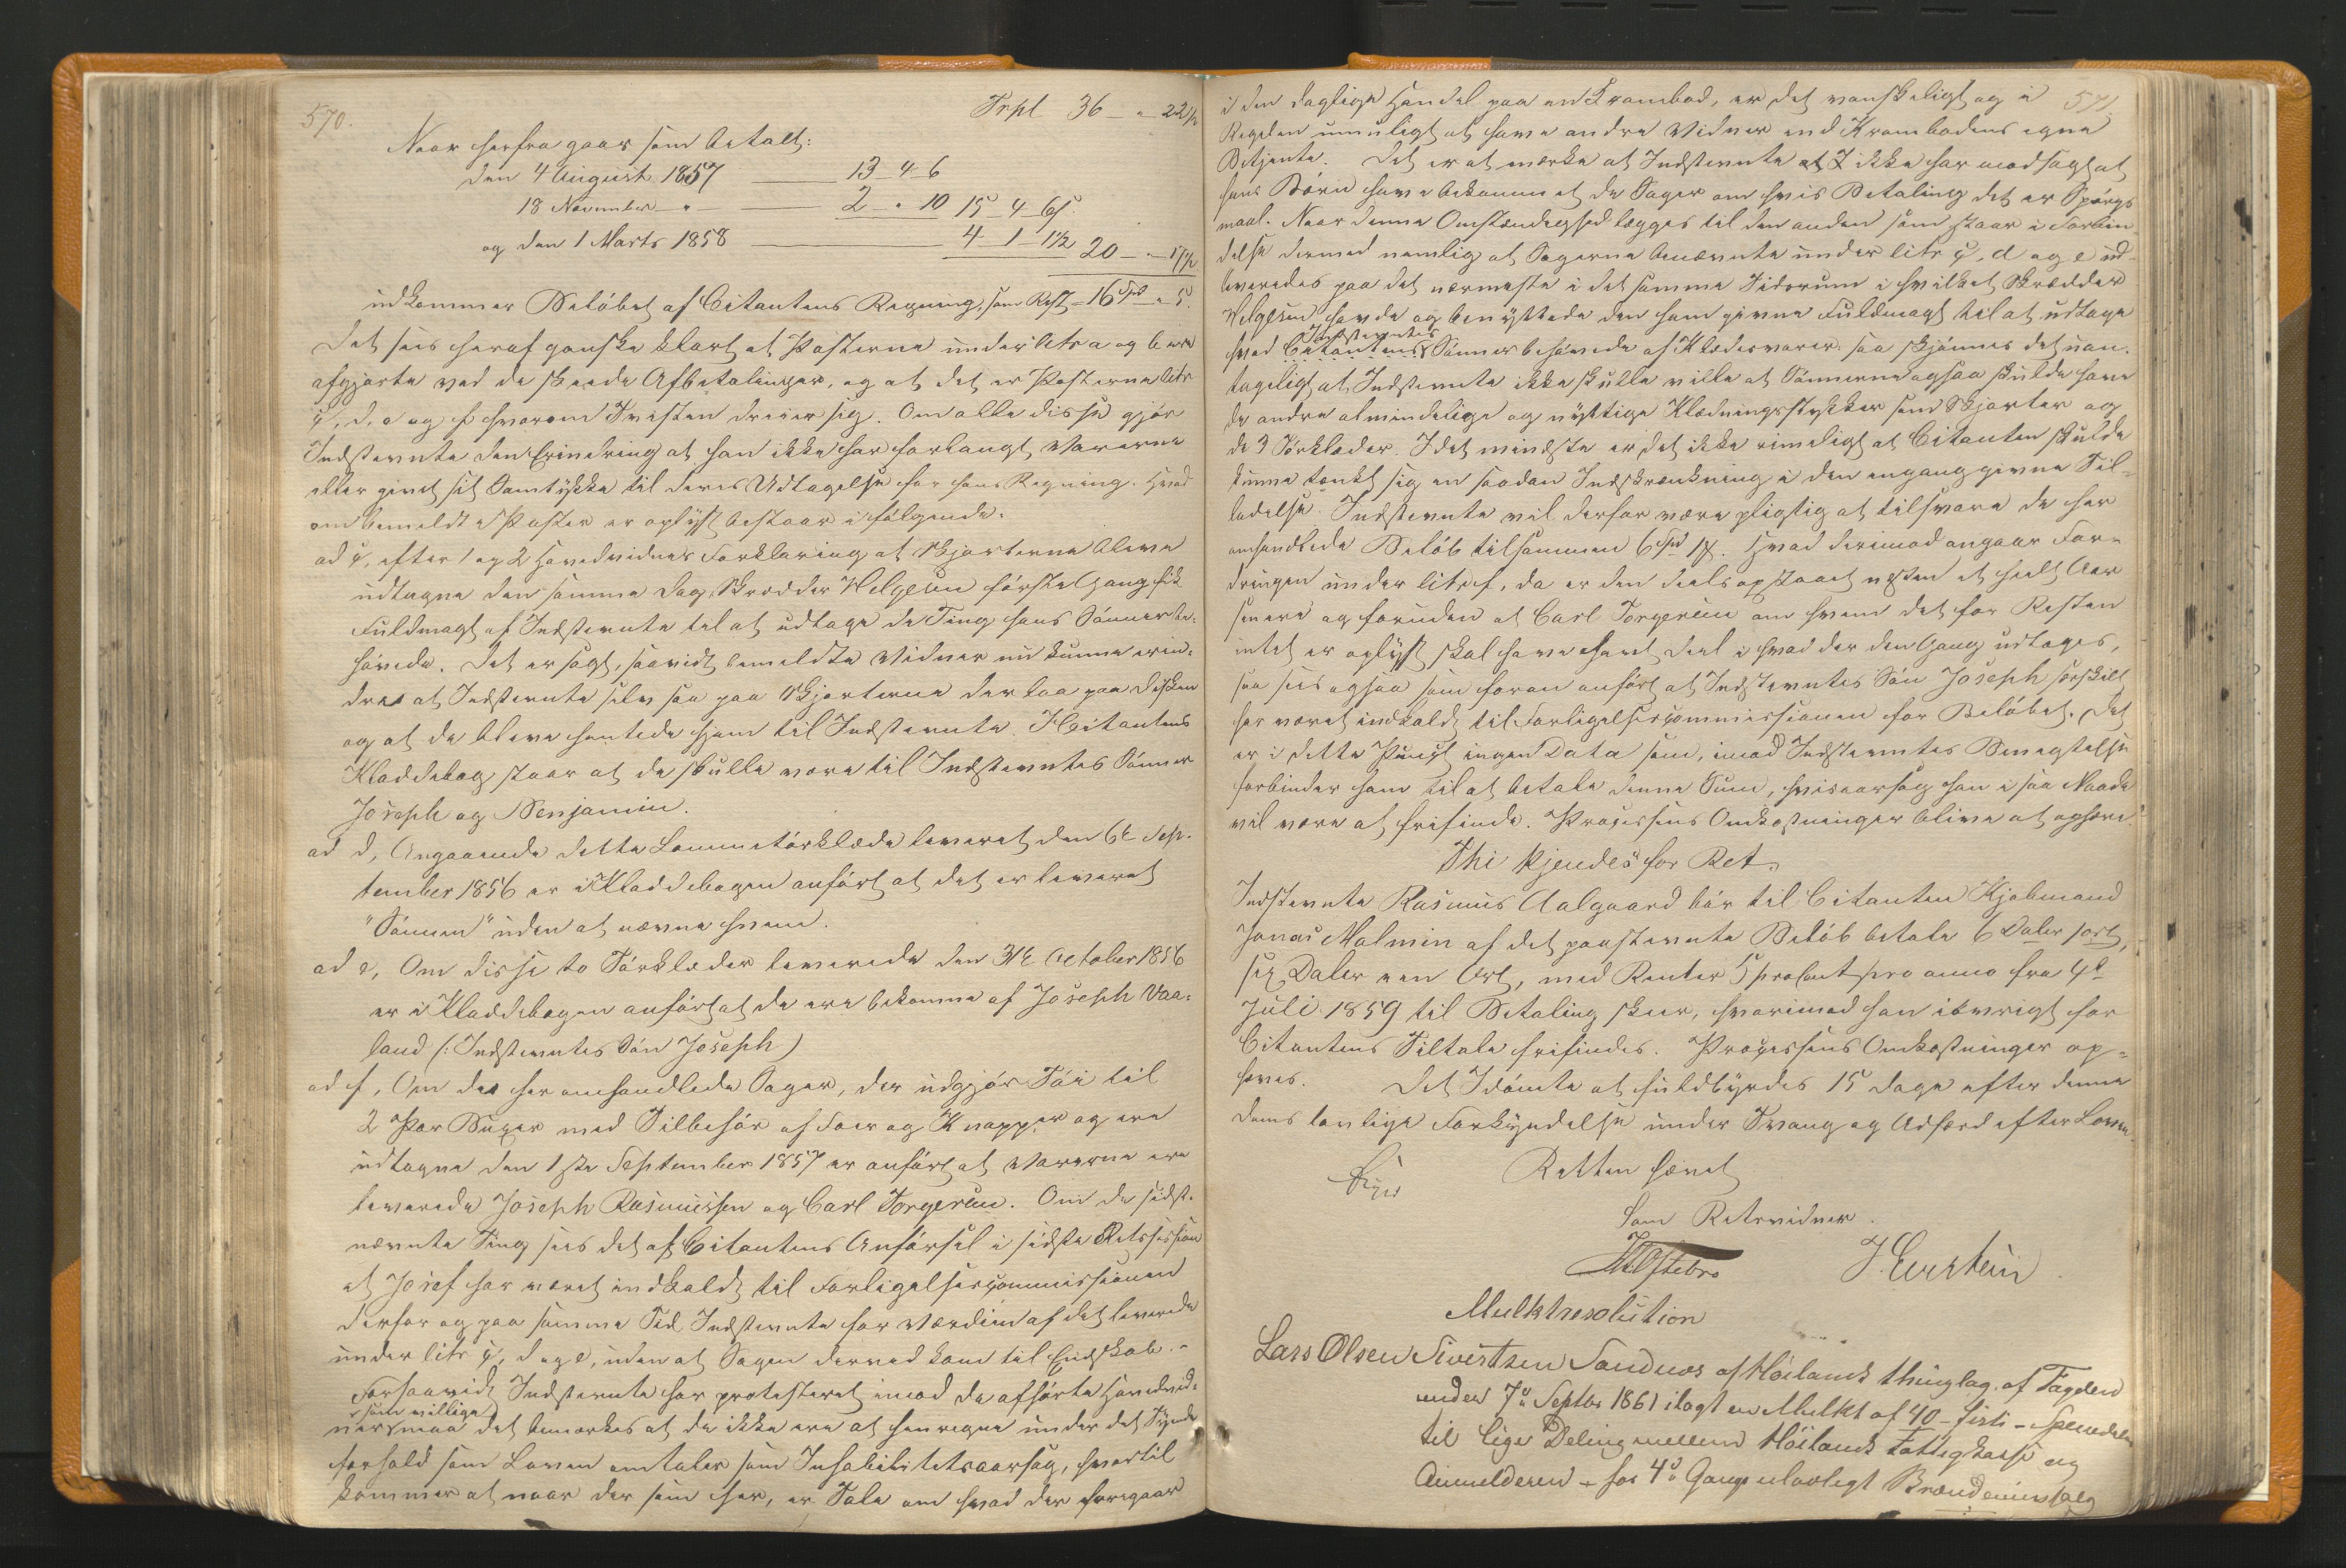 570.
Trpt 36 _ " 22½
Naar herfra gaar som betalt:
den 4 August 1857 13 _ 4 _ 6
18 November " 2 _ " 10 15 _ 4 _ 6 s.
og den 1 Marts 1858 4 _ 1 _ 11½ 20 _ " _ 17½
udkommer Beløbet af Citantens Regning, som Rest = 16 Spd " 5.
Det sees heraf ganske klart at Posterne under litr a og b ere
afgjorte ved de skeede Afbetalinger, og at det er Posterne litr
c, d, e og f hvorom Tvisten dreier sig. Om alle disse gjør
Indstevnte den Erindring at han ikke har forlangt Varerne
eller givet sit Samtykke til deres Udtagelse for hans Regning. Hvad
ombemeldte Poster er oplyst bestaar i følgende.
ad c, efter 1 og 2 Hovedvidners Forklaring at Skjorterne bleve
udtagne den samme Dag Skrædder Helgesen første Gang fik
Fuldmagt af Indstevnte til at udtage de Ting hans Sønner be-
høvede. Det er sagt, saavidt bemeldte Vidner nu kunne erin-
dres at Indstevnte selv saa paa Skjorterne der laa paa Disken
og at de bleve hentede hjem til Indstevnte. I Citantens
Kladdebog staar at de skulle være til Indstevntes Sønner
Joseph og Benjamin.
ad d, Angaaende dette Lommetørklæde leveret den 6te Sep-
tember 1856 er i Kladdebogen anført at det er leveret
"Sønnen" uden at nævne hvem.
ad e, Om disse to Tørklæder leverede den 31te October 1856
er i Kladdebogen anført at de ere bekomne af Joseph Vaa-
land (: Indstevntes Søn Joseph)
ad f, Om de her omhandlede Sager, der udgjør Tøi til
2 Par Buxer med Tilbehør af Foer og Knapper og ere
udtagne den 1ste September 1857 er anført at Varerne ere
leverede Joseph Rasmussen og Carl Torgersen. Om de sidst-
nævnte Ting sees det af Citantens Anførsel i sidste Retssession
at Josef har været indkaldt til Forligelsescommissionen
derfor og paa samme Tid Indstevnte for Værdien af det leverede
under litr c, d og e, uden at Sagen derved kom til Endskab.-
Forsaavidt Indstevnte har protesteret imod de afhørte Hovedvid-
som villige
ner maa det bemærkes at de ikke ere at henregne under det
forhold som Loven omtaler som Inhabilitetsaarsag, hvortil
kommer at naar der som her, er Tale om hvad der foregaar
571.
i den daglige Handel paa en Krambod, er det vanskeligt og i
Regelen umuligt at have andre Vidner end Krambodens egne
Betjente. Det er at mærke at Indstevnte ikke har modsagt at
hans Børn have bekommet de Sager om hvis Betaling det er Spørgs
maal. Naar denne Omstændighed lægges til den anden som staar i Forbin
delse dermed nemlig at Sagerne benævnte under litr c, d og e ud-
leveredes paa det nærmeste i det samme Tidsrum i hvilket Skrædder
Helgesen havde og benyttede den ham givne Fuldmagt til at udtage
Indstevntes
hvad Citantens Sønner behøvede af Klædesvarer, saa skjønnes det uan-
tageligt at Indstevnte ikke skulle ville at Sønnerne ogsaa skulde have
de andre almindelige og nyttige Klædningsstykker som Skjorter og
de 3 Tørklæder. I det mindste er det ikke rimeligt at Citanten skulde
kunne tænkt sig en saadan Indskrænkning i den engang givne Til-
ladelse. Indstevnte vil derfor være pligtig at tilsvare de her
omhandlede Beløb tilsammen 6 Spd 1 #. Hvad derimod angaar For-
dringen under litr f, da er den deels opstaaet næsten et heelt Aar
senere og foruden at Carl Torgersen om hvem det for Resten
intet er oplyst skal have havt Deel i hvad der den Gang udtoges,
saa sees ogsaa som foran anført at Indstevntes Søn Joseph særskilt
har været indkaldt til Forligelsescommissionen for Beløbet. Det
er i dette Punct ingen Data som, imod Indstevntes Benegtelse
forbinder ham til at betale denne Sum, hvisaarsag han i saa Maade
vil være at frifinde. Processens Omkostninger blive at ophæve.
Thi kjendes for Ret.
Indstevnte Rasmus Aalgaard bør til Citanten Kjøbmand
Jonas Malmin af det paastevnte Beløb betale 6 Daler 1 ort,
sex Daler een Ort, med Renter 5 procent pro anno fra 4de
Juli 1859 til Betaling skeer, hvorimod han iøvrigt for
Citantens Tiltale frifindes. Processens Omkostninger op-
hæves. Det Idømte at fuldbyrdes 15 Dage efter denne
Doms lovlige Forkyndelse under Tvang og Adfærd efter Loven.
Retten hævet
Som Retsvidner.
Mulktresolution
Lars Olsen Sivertsen Sandnæs af Høilands thinglag. af Fogden
under 7de Septbr 1861 ilagt en Mulkt af 40 - firti - Speciedaler
til lige Deling mellem Høilands Fattigkasse og
Anmelderen - for 4de Gangs ulovligt Brændeviinssalg